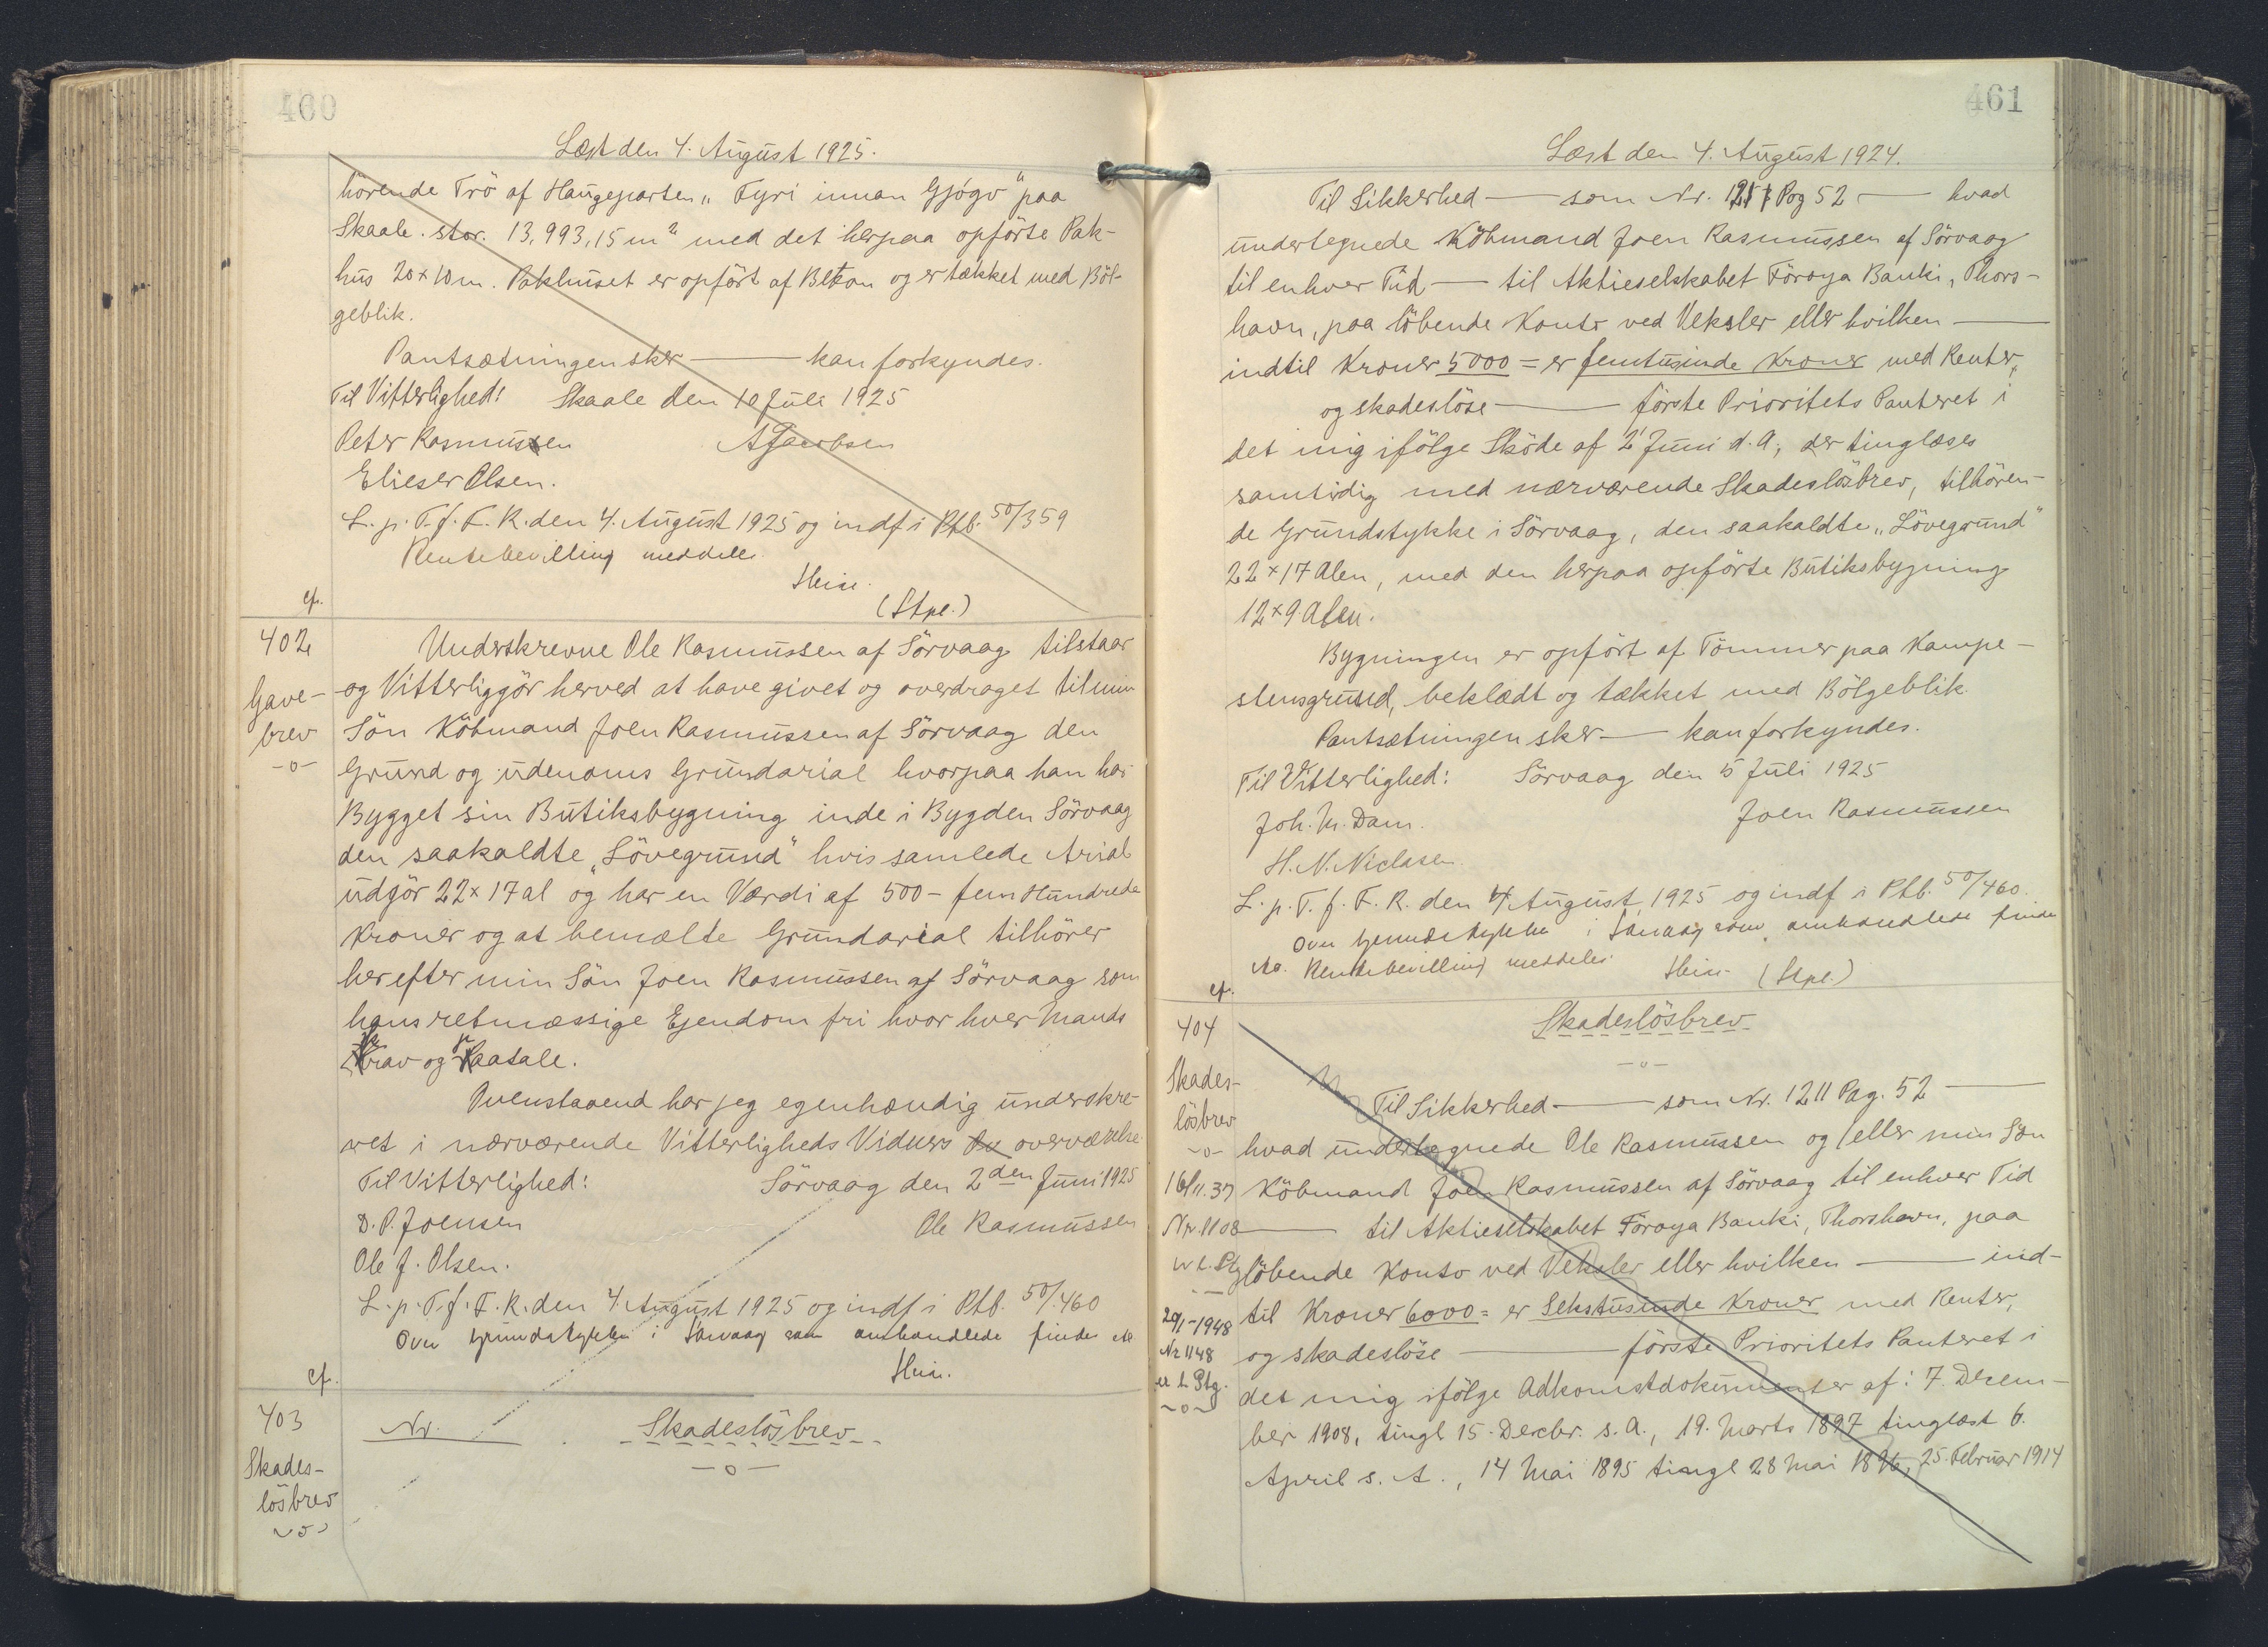 460
Læst den 4. August 1925.
hörende Trö af Haugeparten „Fyri innan Gjógv" paa
Skaale. stor. 13,993,15 m² med det herpaa opförte Pak-
hus 20 x 10 m. Pakhuset er opfört af Beton og er tækket med Böl-
geblik.
Pantsætningen sker — kan forkyndes.
Til Vitterlighed: Skaale den 10 Juli 1925
Peter Rasmussen AJacobsen
Elieser Olsen.
L. p. T. f. F. R. den 4. August 1925 og indf i Ptb. 50/359
Rentebevilling meddeles.
Heise.
cf. (Stpl.)
402
Gave-
brev
-o-
Underskrevne Ole Rasmussen af Sörvaag tilstaar
og Vitterliggör herved at have givet og overdraget til min
Sön Köbmand Joen Rasmussen af Sörvaag den
Grund og udenoms Grundarial hvorpaa han har
Bygget sin Butiksbygning inde i Bygden Sörvaag
den saakaldte „Lövegrund" hvis samlede Arial
udgör 22 x 17 al og har en Værdi af 500 - fem Hundrede
Kroner og at bemælte Grundarial tilhörer
herefter min Sön Joen Rasmussen af Sörvaag som
hans retmæssige Ejendom fri hvor hver Mands
Krav og Paatale.
Ovenstaaend har jeg egenhændig underskre-
vet i nærværende Vitterligheds Vidners overværelse.
Til Vitterlighed: Sörvaag den 2den Juni 1925
D. P. Joensen Ole Rasmussen
Ole J. Olsen.
L. p. T. f. F. R. den 4. August 1925 og indf i Ptb. 50/460
Over Grundstykke i Sörvaag som omhandlede findes
Heise.
cf.
403
Skades-
lösbrev
-o-
Nr. Skadeslösbrev
-o-
461
Læst den 4. August 1924.
Til Sikkerhed — som Nr. 1211 Pag 52 — hvad
undertegnede Köbmand Joen Rasmussen af Sörvaag
til enhver Tid — til Aktieselskabet Föroya Banki, Thors-
havn, paa löbende Konto ved Veksler eller hvilken —
indtil Kroner 5000 = er femtusinde Kroner med Renter,
og skadeslöse — förste Prioritets Panteret i
det mig ifölge Sköde af 2' Juni d. A., der tinglæses
samtidig med nærværende Skadeslösbrev, tilhören-
de Grundstykke i Sörvaag, den saakaldte „Lövegrund"
22 x 17 Alen, med den herpaa opförte Butiksbygning
12 x 9 Alen.
Bygningen er opfört af Tömmer paa Kampe-
stensgrund, beklædt og tækket med Bölgeblik.
Pantsætningen sker — kan forkyndes.
Til Vitterlighed: Sörvaag den 5 Juli 1925
Joh. M. Dam. Joen Rasmussen
H. N. Niclasen.
L. p. T. f. F. R. den 4. August 1925 og indf i Ptb. 50/460.
Over Grundstykke i Sörvaag som omhandlede findes
Rentebevilling meddeles
Heise. (Stpl.)
cf.
404
Skades-
lösbrev
-o-
16/11.37
Nr. 1108
20/1-1948
Nr 1148
-o-
Skadeslösbrev
-o-
Til Sikkerhed — som Nr. 1211 Pag. 52 —
hvad undertegnede Ole Rasmussen og/eller min Sön
Köbmand Joen Rasmussen af Sörvaag til enhver Tid
— til Aktieselskabet Föroya Banki, Thorshavn, paa
löbende Konto ved Veksler eller hvilken — ind-
til Kroner 6000 = er Sekstusinde Kroner med Renter,
og skadeslöse — förste Prioritets Panteret i
det mig ifölge Adkomstdokumenter af: 7. Decem-
ber 1908, tingl 15. Decbr. s. A., 19. Marts 1897 tinglæst 6.
April s. A., 14 Mai 1895 tingl 28 Mai 1896, 25. Februar 1914